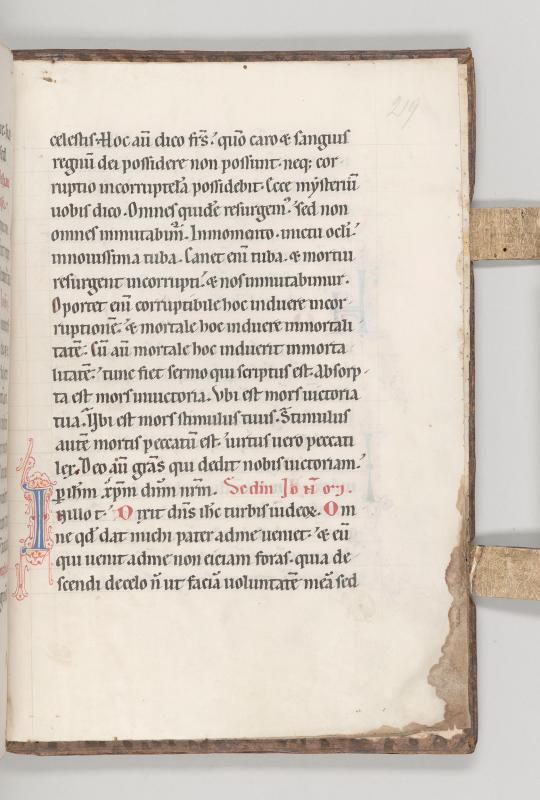 219
celestis. Hoc aū dico frs̄. quō caro & sanguis
regnū dei possidere non possunt. neq; cor
ruptio incorruptelā possidebit. Ecce mysteriū
uobis dico. Omnes quidē resurgem᷒. sed non
omnes inmutabim᷒. In momento. inictu ocli.
innouissima tuba. Canet eni tuba. & mortui
resurgent incorrupti. & nos inmutabimur.
Oportet eni corruptibile hoc induere incor
ruptionē. & mortale hoc induere inmortali
tatē. Cū aū mortale hoc induerit inmorta
litatē. tunc fiet sermo qui scriptus est. Absorp
ta est mors inuictoria. Vbi est mors uictoria
tua. Vbi est mors stimulus tuus. Stimulus
autē mortis peccatū est. uirtus uero peccati
lex. Deo aū gras̄ qui dedit nobis uictoriam.
p ihm̄ xpm̄ dnm̄ nrm̄. Scdm Joh
In illo t. Dixit dns̄ ihc turbis iudeoꝝ. Om
ne qd̄ dat michi pater adme ueniet. & eū
qui uenit adme non eiciam foras. quia de
scendi decelo n̄ ut faciā uoluntatē meā sed